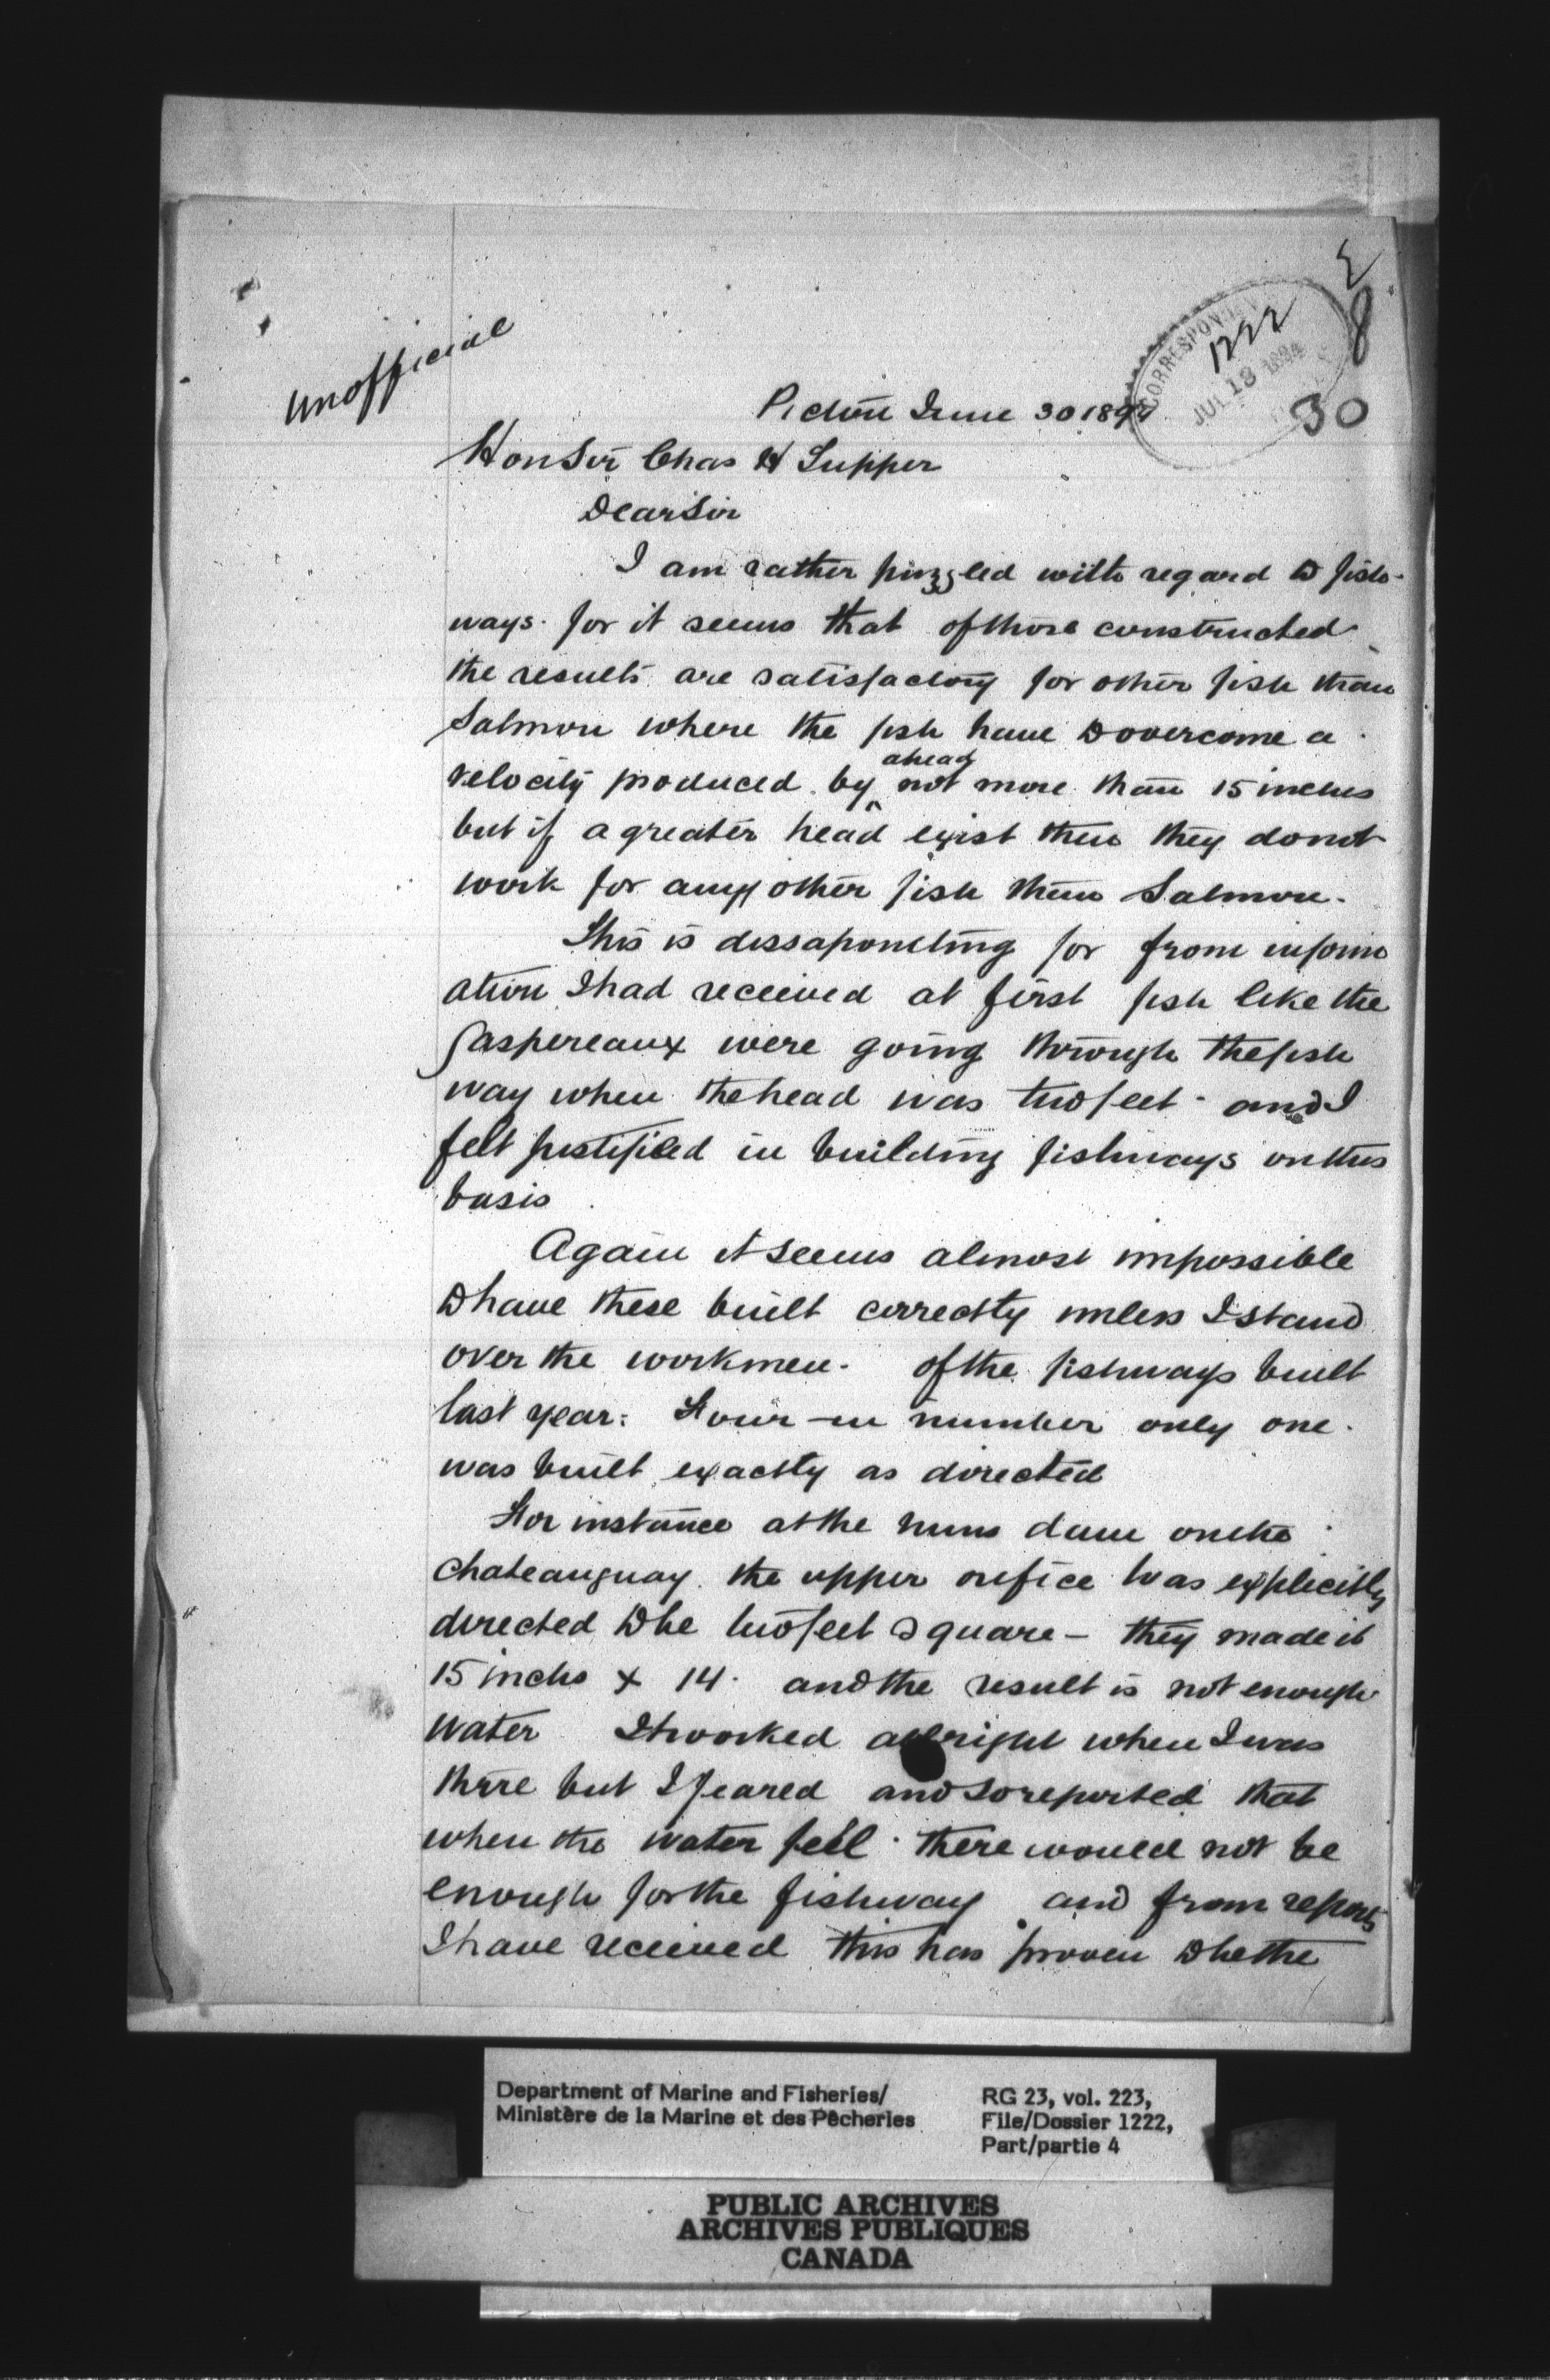 unofficial
CORRESPONDENCE
1222
JUL 13 1894
E
8
30
Pictou June 30 1894
Hon Sir Chas H Tupper
Dear Sir
I am rather puzzled with regard to fish-
ways. for it seems that of those constructed
the results are satisfactory for other fish than
Salmon where the fish have to overcome a
velocity produced by ^ahead not more than 15 inches
but if a greater head exist then they do not
work for any other fish than Salmon.
This is dissapointing for from inform
ation I had received at first fish like the
Gaspereaux were going through the fish
way when the head was two feet - and I
felt justified in building fishways on this
basis
Again it seems almost impossible
to have these built correctly unless I stand
over the workmen. of the fishways built
last year: Four in number only one.
was built exactly as directed
For instance at the nuns dam on the
Chateauguay. the upper orifice was explicitly
directed to be two feet square - they made it
15 inchs x 14. and the result is not enough
water It worked allright when I was
there but I feared and so reported that
when the water fell there would not be
enough for the fishway and from reports
I have received this has proven to be the
Department of Marine and Fisheries/
Ministère de la Marine et des Pêcheries
RG 23, vol. 223,
File/Dossier 1222,
Part/partie 4
PUBLIC ARCHIVES
ARCHIVES PUBLIQUES
CANADA